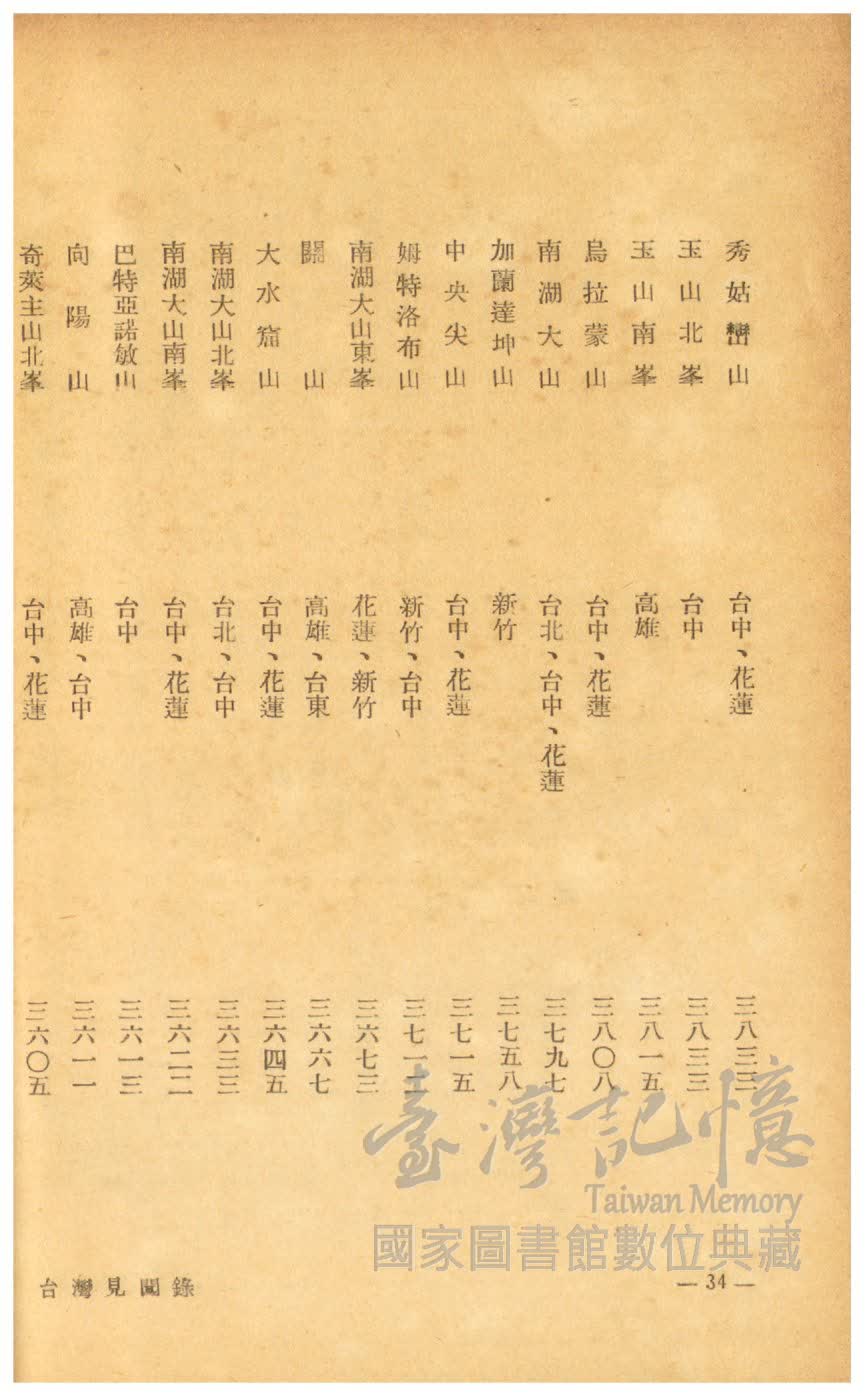 秀姑巒山 台中、花蓮 三八三三
玉山北峯 台中 三八三三
玉山南峯 高雄 三八一五
烏拉蒙山 台中、花蓮 三八〇八
南湖大山 台北、台中、花蓮 三七九七
加蘭達坤山 新竹 三七五八
中央尖山 台中、花蓮 三七一五
姆特洛布山 新竹、台中 三七一二
南湖大山東峯 花蓮、新竹 三六七三
關山 高雄、台東 三六六七
大水窟山 台中、花蓮 三六四五
南湖大山北峯 台北、台中 三六三三
南湖大山南峯 台中、花蓮 三六二二
巴特亞諾敏山 台中 三六一三
向陽山 高雄、台中 三六一一
奇萊主山北峯 台中、花蓮 三六〇五
臺灣記憶
Taiwan Memory
國家圖書館數位典藏
台灣見聞錄
— 34 —